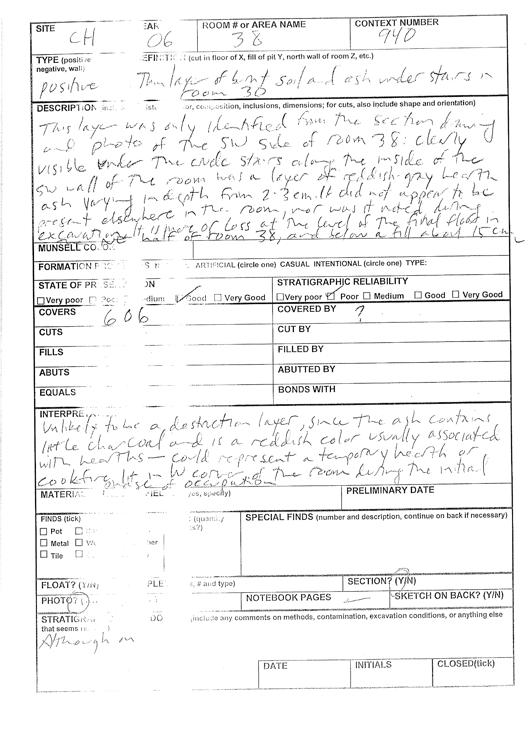 SITE CH YEAR 06 ROOM # or AREA NAME 38 CONTEXT NUMBER 940
TYPE (positive negative, wall) positive DEFINITION (cut in floor of X, fill of pit Y, north wall of room Z, etc.)
Thin layer of burnt soil and ash under stairs in
room 30
DESCRIPTION composition, inclusions, dimensions; for cuts, also include shape and orientation)
This layer was only identified from the section drawing
and photo of the SW side of room 38: clearly
visible under the crude stairs along the inside of the
SW wall of the room was a layer of reddish-gray hearth
ash varying in depth from 2-3cm. It did not appear to be
present elsewhere in the room, nor was it noted during
excavation. It is more or less at the level of the final floor in
half of room 38, and below a fill about 15 cm
MUNSELL CO
FORMATION ARTIFICIAL (circle one) CASUAL INTENTIONAL (circle one) TYPE:
STATE OF STRATIGRAPHIC RELIABILITY
Very poor Medium Good Very Good Very poor Poor Medium Good Very Good
COVERS 606 COVERED BY ?
CUTS CUT BY
FILLS FILLED BY
ABUTS ABUTTED BY
EQUALS BONDS WITH
INTERPRE
Unlikely to be a destruction layer, since the ash contains
little charcoal and is a reddish color usually associated
with hearths – could represent a temporary hearth or
cookfire lit in W corner of the room during the initial
phase of occupation
MATERIAL specify) PRELIMINARY DATE
FINDS (tick) (quantity SPECIAL FINDS (number and description, continue on back if necessary)
Pot
Metal
Tile
FLOAT? (Y/N) # and type) SECTION? (Y/N)
PHOTO? NOTEBOOK PAGES SKETCH ON BACK? (Y/N)
STRATIGRA include any comments on methods, contamination, excavation conditions, or anything else
that seems
Although
DATE INITIALS CLOSED(tick)